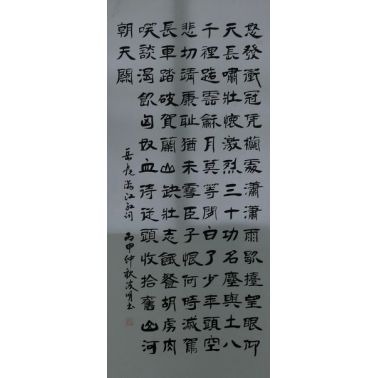 怒發衝冠凭欄處瀟瀟雨歇擡望眼仰
天長嘯壯懷激烈三十功名塵與土八
千裡路雲龢月莫等閑白了少年頭空
悲切靖康耻猶未雪臣子恨何時滅駕
長車踏破賀蘭山缺壯志飢餐胡虜肉
笑談渴飲匈奴血待從頭收拾舊山河
朝天闕
岳飛滿江紅詞 丙申仲秋 明書